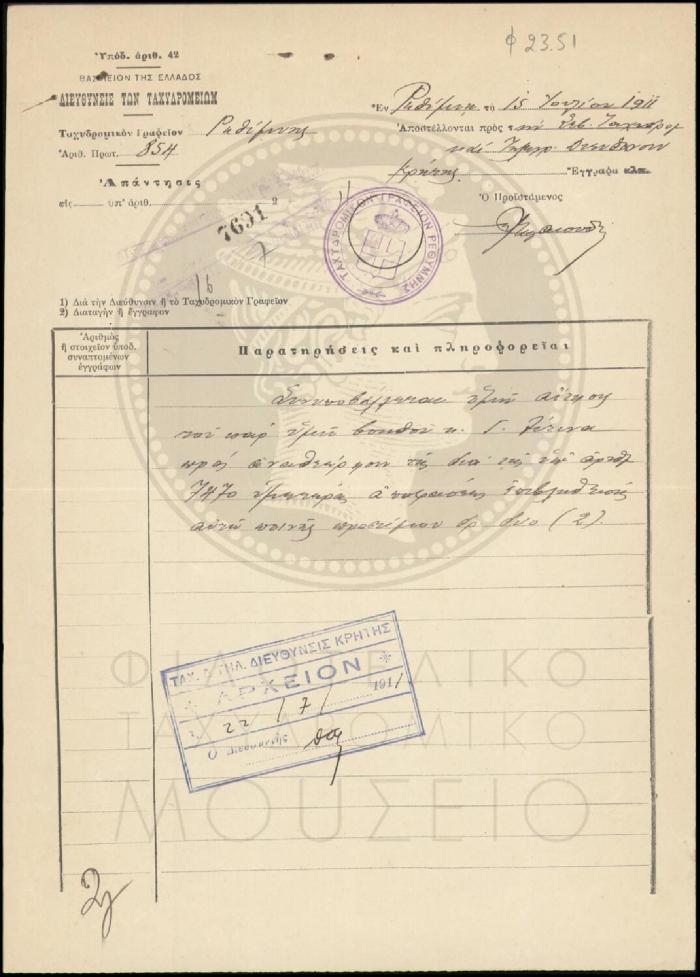 φ 23.51
Ὑπόδ. ἀριθ. 42
ΒΑΣΙΛΕΙΟΝ ΤΗΣ ΕΛΛΑΔΟΣ
ΔΙΕΥΘΥΝΣΙΣ ΤΩΝ ΤΑΧΥΔΡΟΜΕΙΩΝ
Ταχυδρομικὸν Γραφεῖον Ρεθύμνης
Ἀριθ. Πρωτ. 854
Ἀπάντησις
εἰς ὑπ' ἀριθ.
7691
Ἐν Ρεθύμνῃ τῇ 15 Ἰουλίου 1911
Ἀποστέλλονται πρὸς τὴν Σεβ. Ταχυδρ
καὶ Τηλεγρ. Διεύθυνσιν
Κρήτης Ἔγγραφα κλπ.
Ὁ Προϊστάμενος
ΤΑΧΥΔΡΟΜΙΚΟΝ ΓΡΑΦΕΙΟΝ ΡΕΘΥΜΝΗΣ
1) Διὰ τὴν Διεύθυνσιν ἢ τὸ Ταχυδρομικὸν Γραφεῖον
2) Διαταγὴν ἢ ἔγγραφον
Ἀριθμὸς
ἢ στοιχεῖον ὑποδ.
συναπτομένων
ἐγγράφων
Παρατηρήσεις καὶ πληροφορεῖαι
Συνυποβάλλεται ὑμῖν αἴτησις
τοῦ παρ' ἡμῖν βοηθοῦ κ. Γ.
πρὸς ἀναθεώρησιν τῆς διὰ τῆς ὑπ' ἀριθ
7470 ὑμετέρας ἀποφάσεως ἐπιβληθείσης
αὐτῷ ποινῆς προστίμου δρ. δύο (2).
ΤΑΧ. & ΤΗΛ. ΔΙΕΥΘΥΝΣΙΣ ΚΡΗΤΗΣ
ΑΡΧΕΙΟΝ
22/7/1911
Ὁ
ΦΙΛΟΤΕΛΙΚΟ
ΤΑΧΥΔΡΟΜΙΚΟ
ΜΟΥΣΕΙΟ